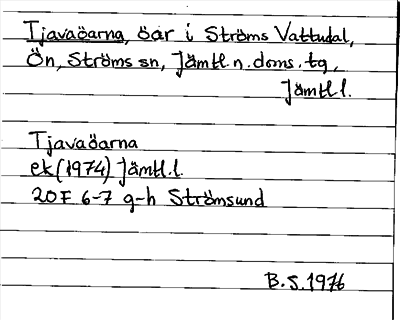 Tjavaöarna, öar i Ströms Vattudal,
Ön, Ströms sn, Jämtl.n.doms.tg,
Jämtl.l.
Tjavaöarna
ek (1974) Jämtl.l.
20F 6-7 g-h Strömsund
B.S. 1976